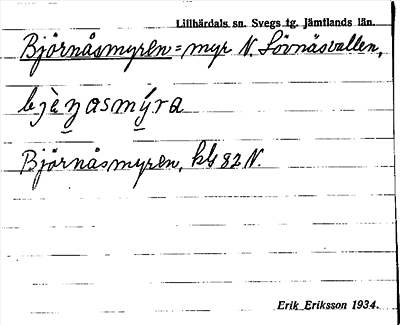 Lillhärdals sn. Svegs tg. Jämtlands län.
Björnåsmyren = myr N. Lövnäsvallen,
Björnåsmyren, kbl 82 N.
Erik Eriksson 1934.